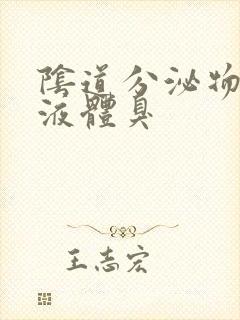 陰道分泌物
液體臭
王志宏